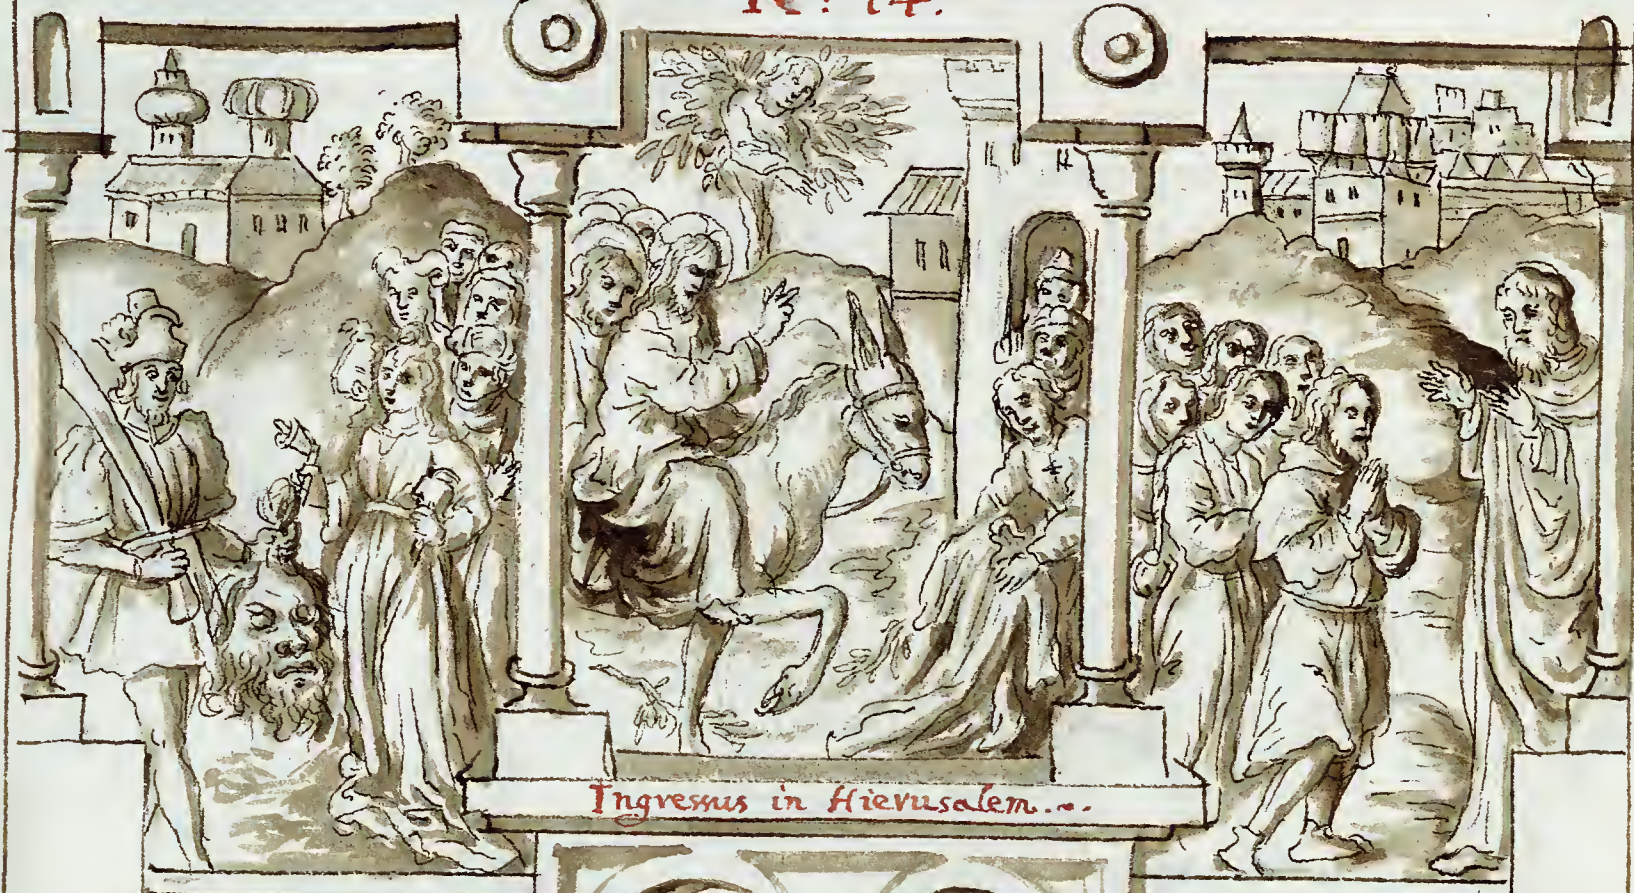 Nº : 14.
Ingressus in Hierusalem...